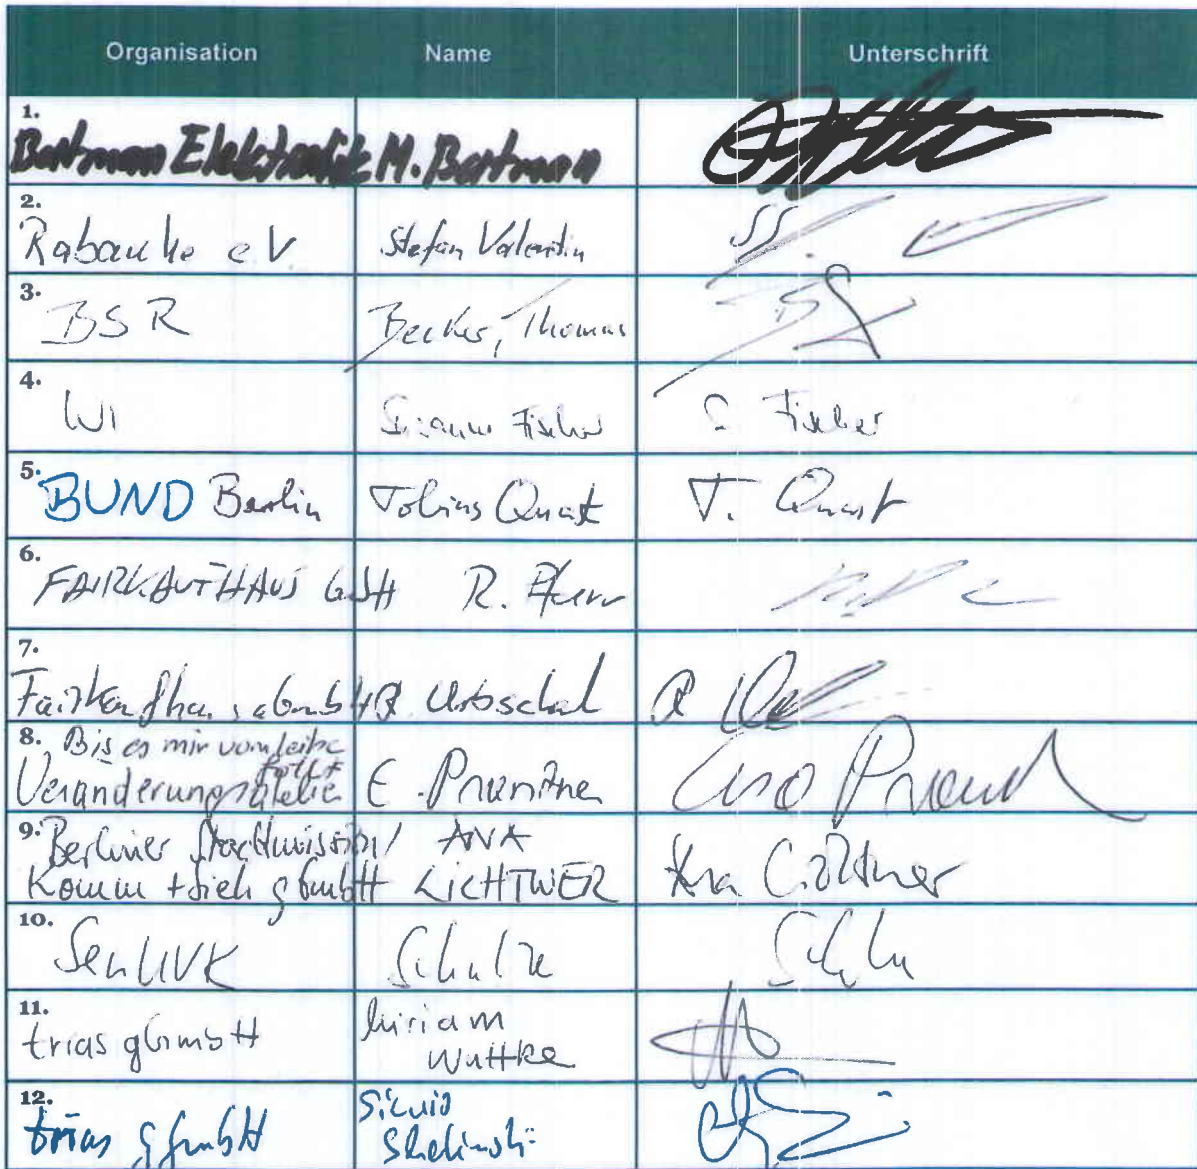 Organisation Name Unterschrift
1. Bartmann Elektronik M. Bartmann
2. Rabauke eV Stefan Valentin
3. BSR Becker, Thomas
4. WI Susanne Fischer S. Fischer
5. BUND Berlin Tobias Quast T. Quast
6. FAIRKAUFHAUS GmbH R.
7. Fairkaufhaus gGmbH R Urbschat R
8. Bis es mir vom Leibe fällt
Veränderungsatelier E. Prantner
9. Berliner Stadtmission/ ANA
Komm + Sieh gGmbH LICHTWER Ana
10. SenUVK Schulze
11. trias gGmbH Miriam
Wuttke
12. trias gGmbH Silvio